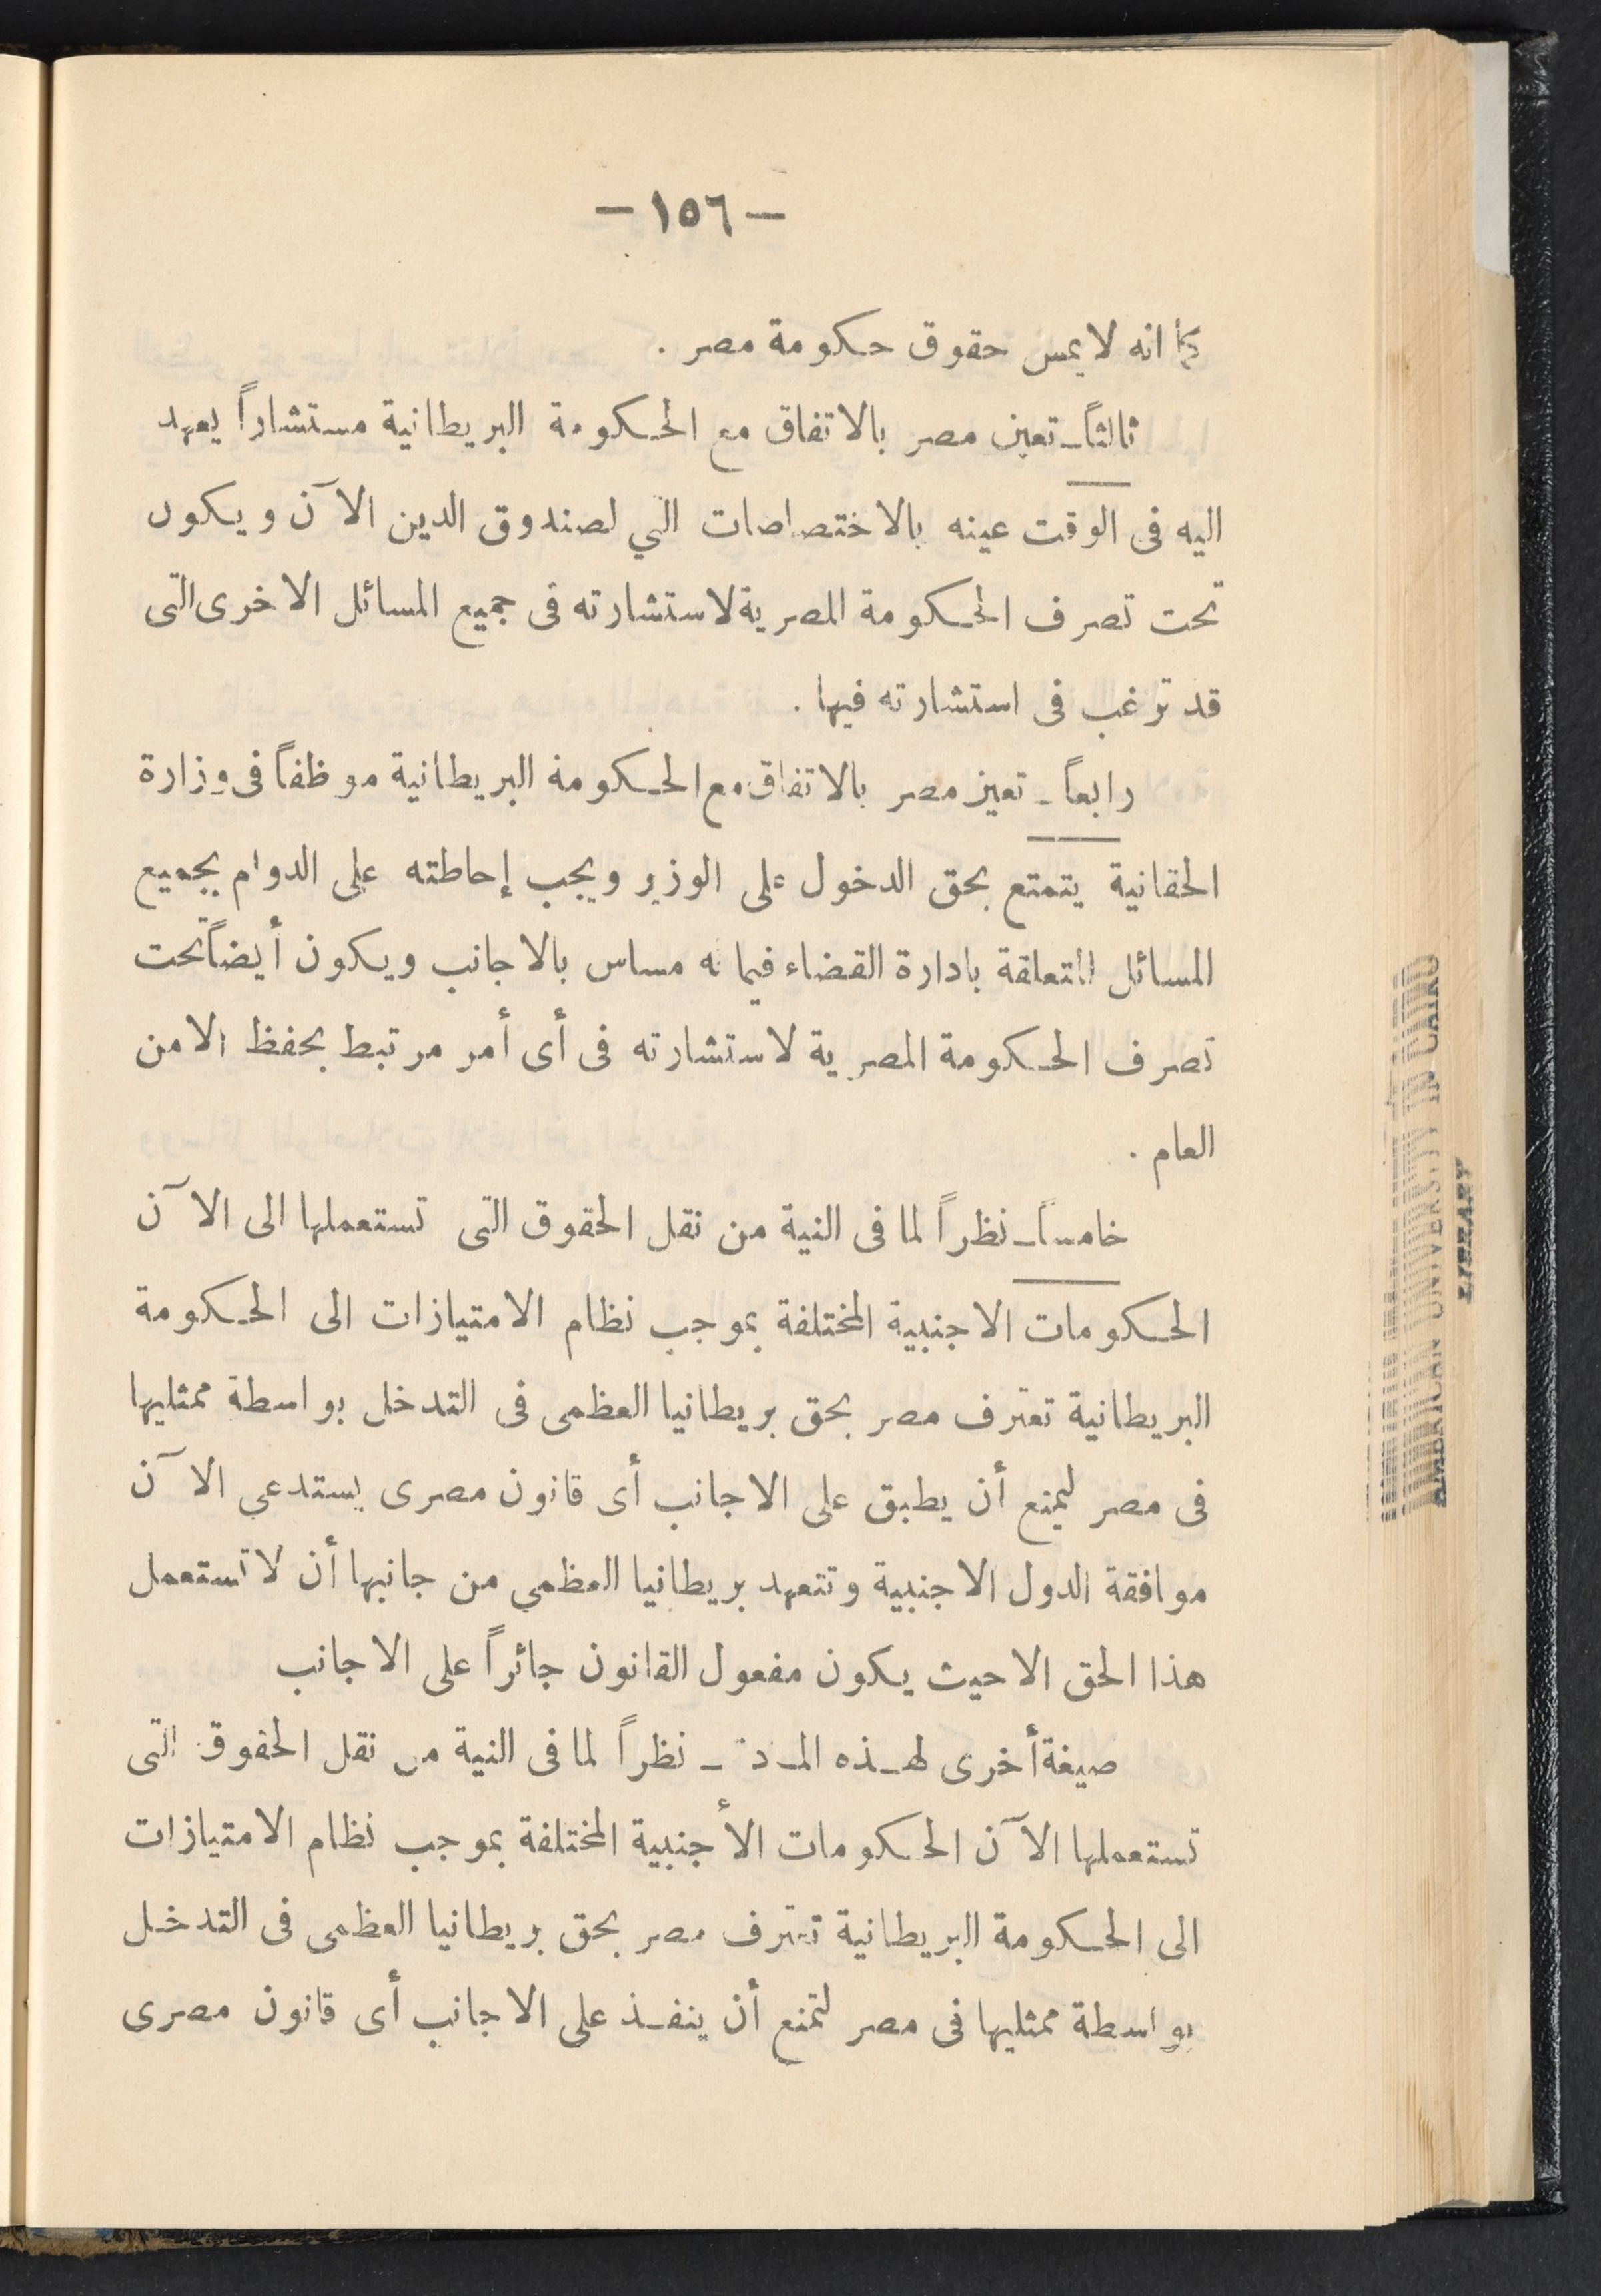 — ١٥٦ —
كما انه لا يمس حقوق حكومة مصر .
ثالثاً ـ تعين مصر بالاتفاق مع الحكومة البريطانية مستشاراً يعهد
اليه فى الوقت عينه بالاختصاصات التي لصندوق الدين الآن ويكون
تحت تصرف الحكومة المصرية لاستشارته فى جميع المسائل الاخرى التى
قد ترغب فى استشارته فيها .
رابعاً ـ تعين مصر بالاتفاق مع الحكومة البريطانية موظفاً فى وزارة
الحقانية يتمتع بحق الدخول على الوزير ويجب إحاطته على الدوام بجميع
المسائل المتعلقة بادارة القضاء فيما له مساس بالاجانب ويكون أيضاً تحت
تصرف الحكومة المصرية لاستشارته فى أى أمر مرتبط بحفظ الامن
العام .
خامساً ـ نظراً لما فى النية من نقل الحقوق التى تستعملها الى الآن
الحكومات الاجنبية المختلفة بموجب نظام الامتيازات الى الحكومة
البريطانية تعترف مصر بحق بريطانيا العظمى فى التدخل بواسطة ممثليها
فى مصر ليمنع أن يطبق على الاجانب أى قانون مصرى يستدعى الآن
موافقة الدول الاجنبية وتتعهد بريطانيا العظمى من جانبها أن لا تستعمل
هذا الحق الا حيث يكون مفعول القانون جائراً على الاجانب
صيغة أخرى لهذه المادة ـ نظراً لما فى النية من نقل الحقوق التى
تستعملها الآن الحكومات الأجنبية المختلفة بموجب نظام الامتيازات
الى الحكومة البريطانية تعترف مصر بحق بريطانيا العظمى فى التدخل
بواسطة ممثليها فى مصر لتمنع أن ينفذ على الاجانب أى قانون مصرى
AMERICAN UNIVERSITY IN CAIRO
LIBRARY